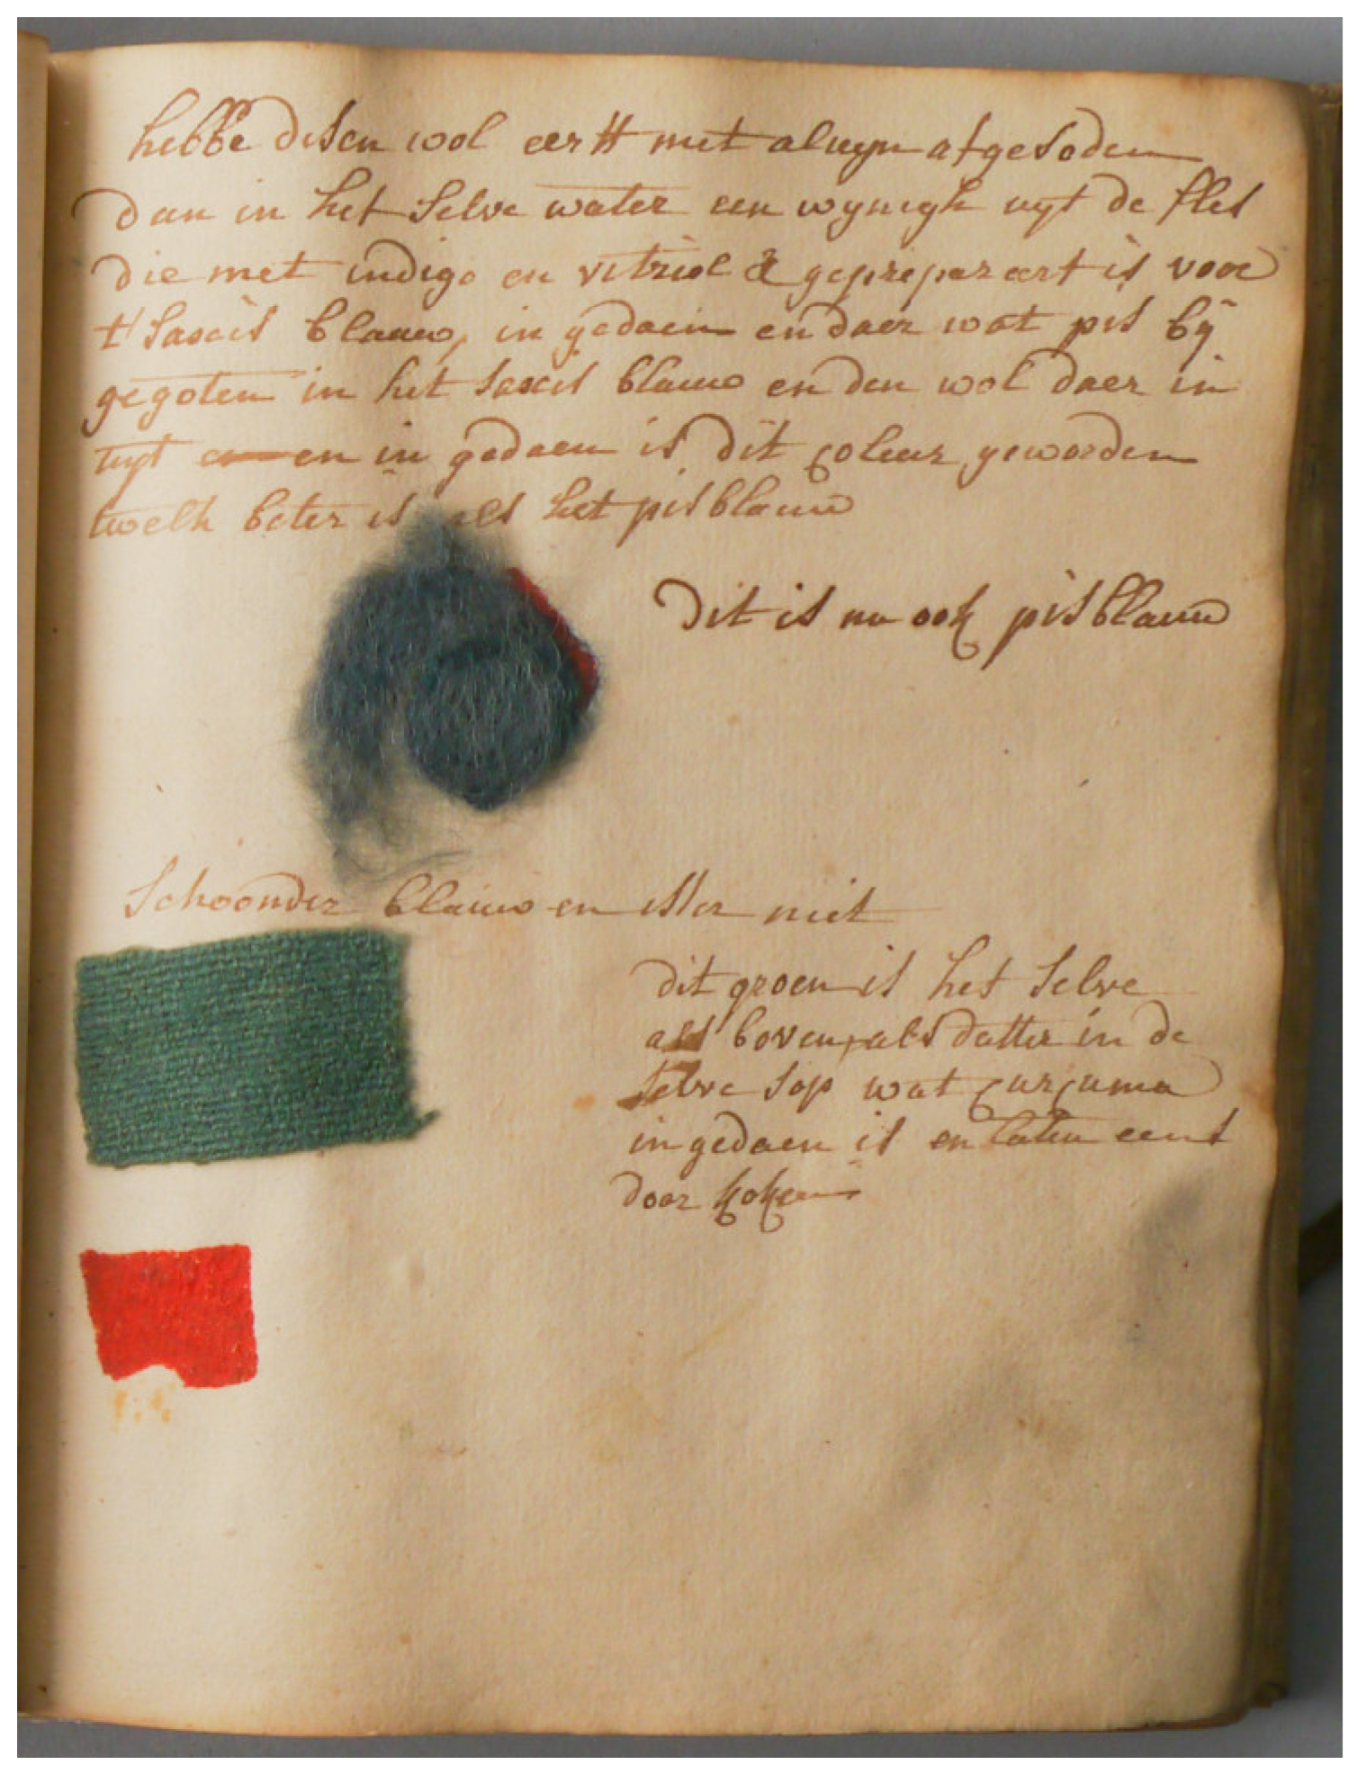 hebbe desen wol eerst met aluyn afgesoden
dan in het selve water een wynigh uyt de fles
die met indigo en vitriol geprepareert is voor
t' saxcis blauw, in gedaen en daer wat pis bÿ
gegoten in het saxcis blauw en den wol daer in
uyt en in gedaen is dit coleur geworden
twelk beter is als het pisblauw
dit is nu ook pisblauw
schoonder blauw en isser niet
dit groen is het selve
als boven, als datter in de
selve sop wat curcuma
in gedaen is en laten eens
door koken